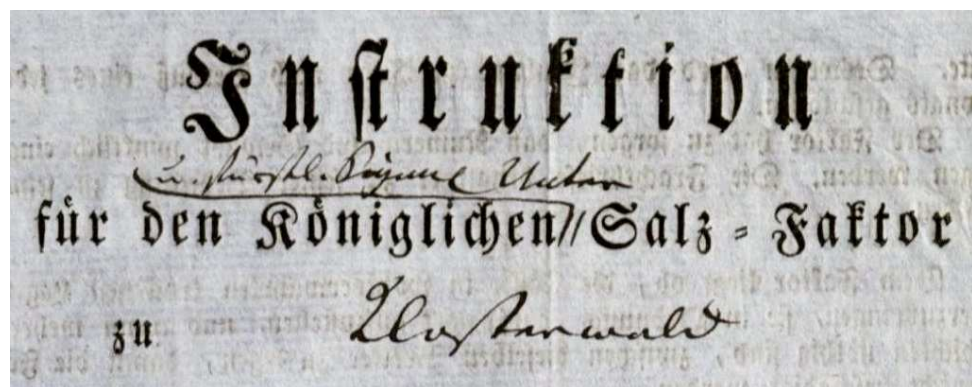 Instruktion
u. fürstl. Unter
für den Königlichen // Salz-Faktor
zu Klosterwald